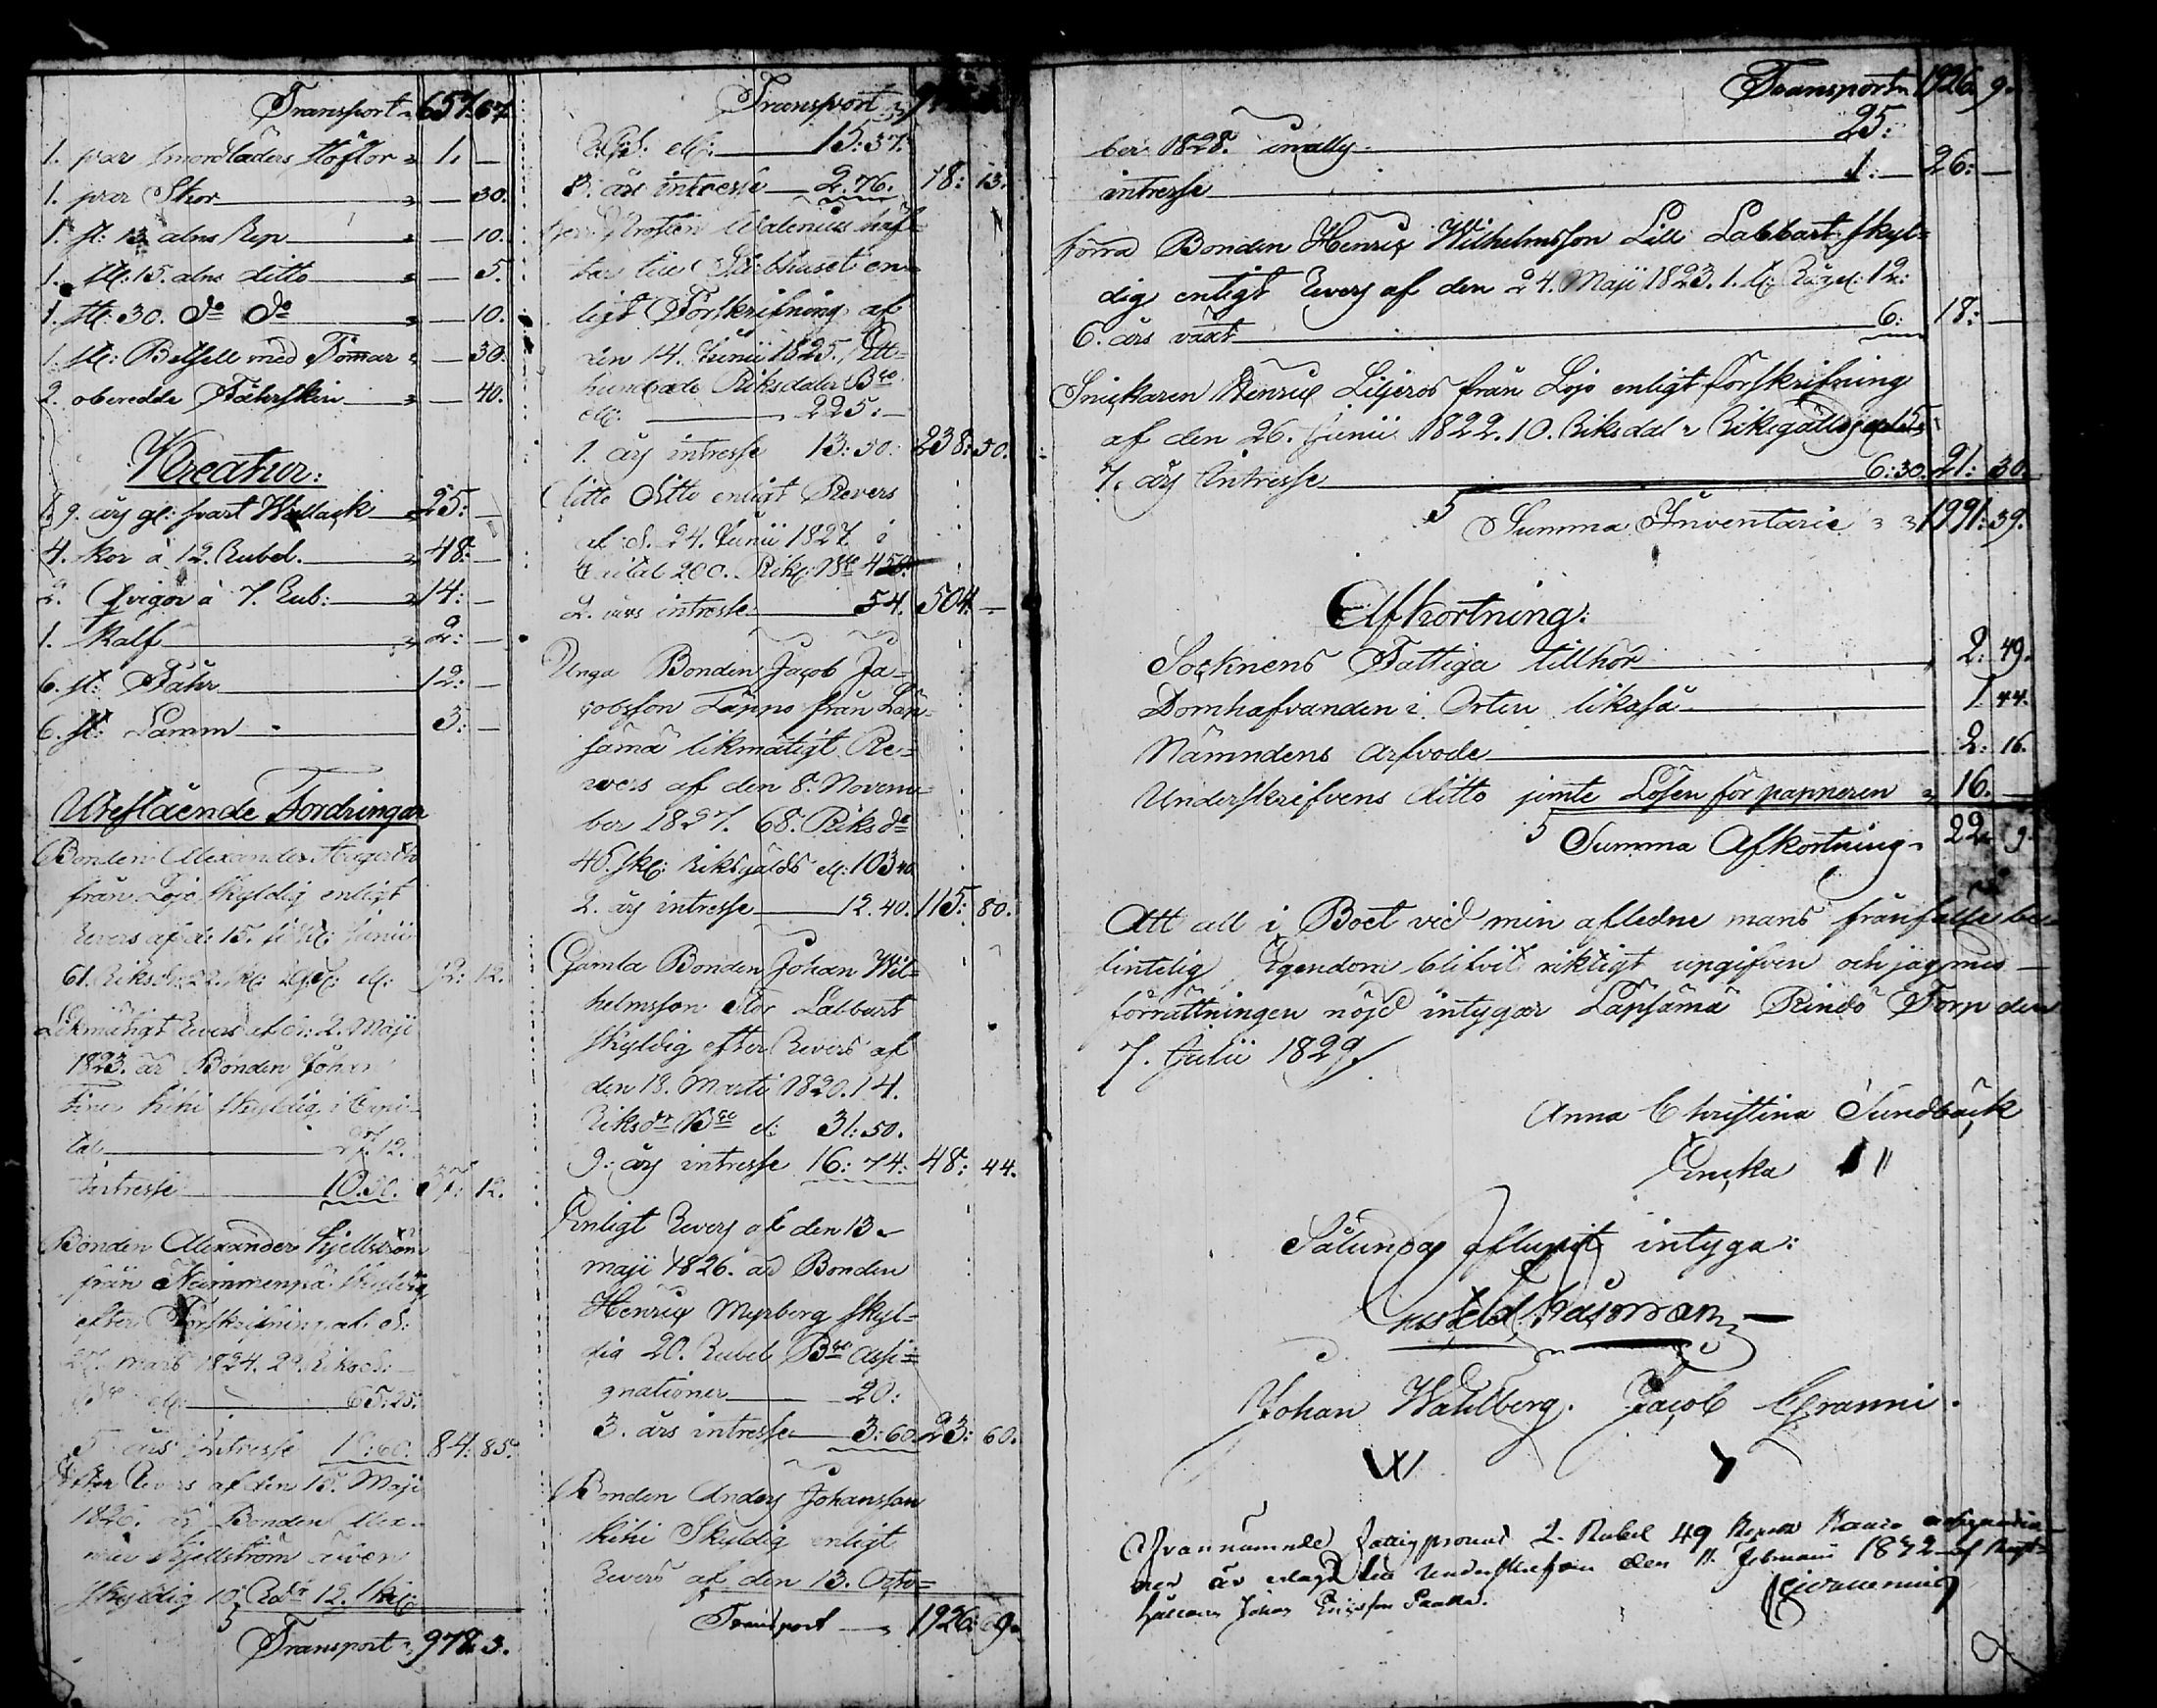 Transport 657. 67.
1. par smordläders Stöflor 1. —
1. par Skor — 30.
1. st: 13 alns Rep — 10.
1. st: 15. alns ditto — 5.
1. st: 30. do do — 10.
1. st: Betsell med Tömar — 30.
2. oberedde Fåhrskin — 40.
Kreatur:
1. 9. års gl: svart Wallack 25: —
4. Kor à 12. Rubel. 48: —
2. Qvigor à 7. Rub: 14: —
1. Kalf 2: —
6. st: Fåhr 12: —
6. st: Lamm 3: —
Utestående Fordringar
Bonden Alexander
från Lojo, skyldig enligt
Revers af d: 15. Junii
61. Riksd: 22. sk: 92: 12.
Likmätigt Revers af d: 2. Maji
1823. är Bonden Johan
Kihi skyldig i Capi-
tal 27. 12.
Intresse 10. 37: 12.
Bonden Alexander Kjellström
från Nummenpä skyldig
efter Förskrifning af d:
27. mars 1824. 29. Riksd:
65: 25:
5 års Intresse 84: 85.
Efter Revers af den 15. Maji
1826. är Bonden Alex-
ander Kjellström äwen
skyldig 10 Rdr 12. sk:
Transport 978. 3.
Transport
15: 37.
3. års intresse 2. 76. 18: 13.
Herr Prosten Walenius häf-
tar till Stärbhuset en-
ligt Förskrifning af
den 14. Junii 1825. Ett-
hundrade Riksdaler Bco
ell: 225: —
1. års intresse 13: 50. 238: 50.
ditto ditto enligt Revers
af d. 24. Junii 1827. i
Capital 200. Rik: Bco 450:
2. års intresse 54. 504. —
Unga Bonden Jacob Ja-
cobsson Täppo från Lap-
samä likmätigt Re-
wers af den 8. Novem-
ber 1827. 68. Riksdr
40. sk: Riksgälds el: 103 40.
2. års intresse 12. 40. 115: 80.
Gamla Bonden Johan Wil-
helmsson Stor Labbart
skyldig efter Revers af
den 13. Marti 1820. 14.
Riksdr Bco el: 31: 50.
9: års intresse 16: 74: 48: 44.
Enligt Revers af den 13
maji 1826. är Bonden
Henric Myrberg skyl-
dig 20. Rubel Bco Assi-
gnationer 20:
3. års intresse 3: 60. 23: 60.
Bonden Anders Johansson
Kihi Skyldig enligt
Revers af den 13. Octo-
Transport 1926: 69.
Transport 1926. 9.
ber 1828. 25:
intresse 1: — 26: —
förra Bonden Henric Wilhelmsson Lill Labbart skyl-
dig enligt Revers af den 24. Maji 1823. 12:
6. års växt 6: 18: —
Snickaren Henric Liljeros från Lojo enligt förskrifning
af den 26. Junii 1822. 10. Riksdal Riksgälds 15:
7. års Intresse 6: 30. 21: 30.
Summa Inventarie 1991: 39.
Afkortning:
Socknens Fattiga tillhör 2: 49.
Domhafvanden i Orten likaså 1. 44.
Nämndens arfvode 2: 16.
Underskrifvens ditto jemte Lösen för papperen 16. —
Summa Afkortning 22. 9.
Att all i Boet vid min aflidne mans frånfalle be-
fintelig Egendom blifvit riktigt uppgifven och jag med
förrättningen nöjd intygar Lapsamä Rindö Torp den
7. Julii 1829
Anna Christina Sundbäck
Enka
Sålunda aflupit intyga:
Johan Wahlberg. Jacob Granni.
Ofvannämnde fattigprocent 2. Rubel 49 Kopek Banco
ner är erlagd till Underskrefven den 11. Februarii 1832 af
hållaren Johan Ericsson